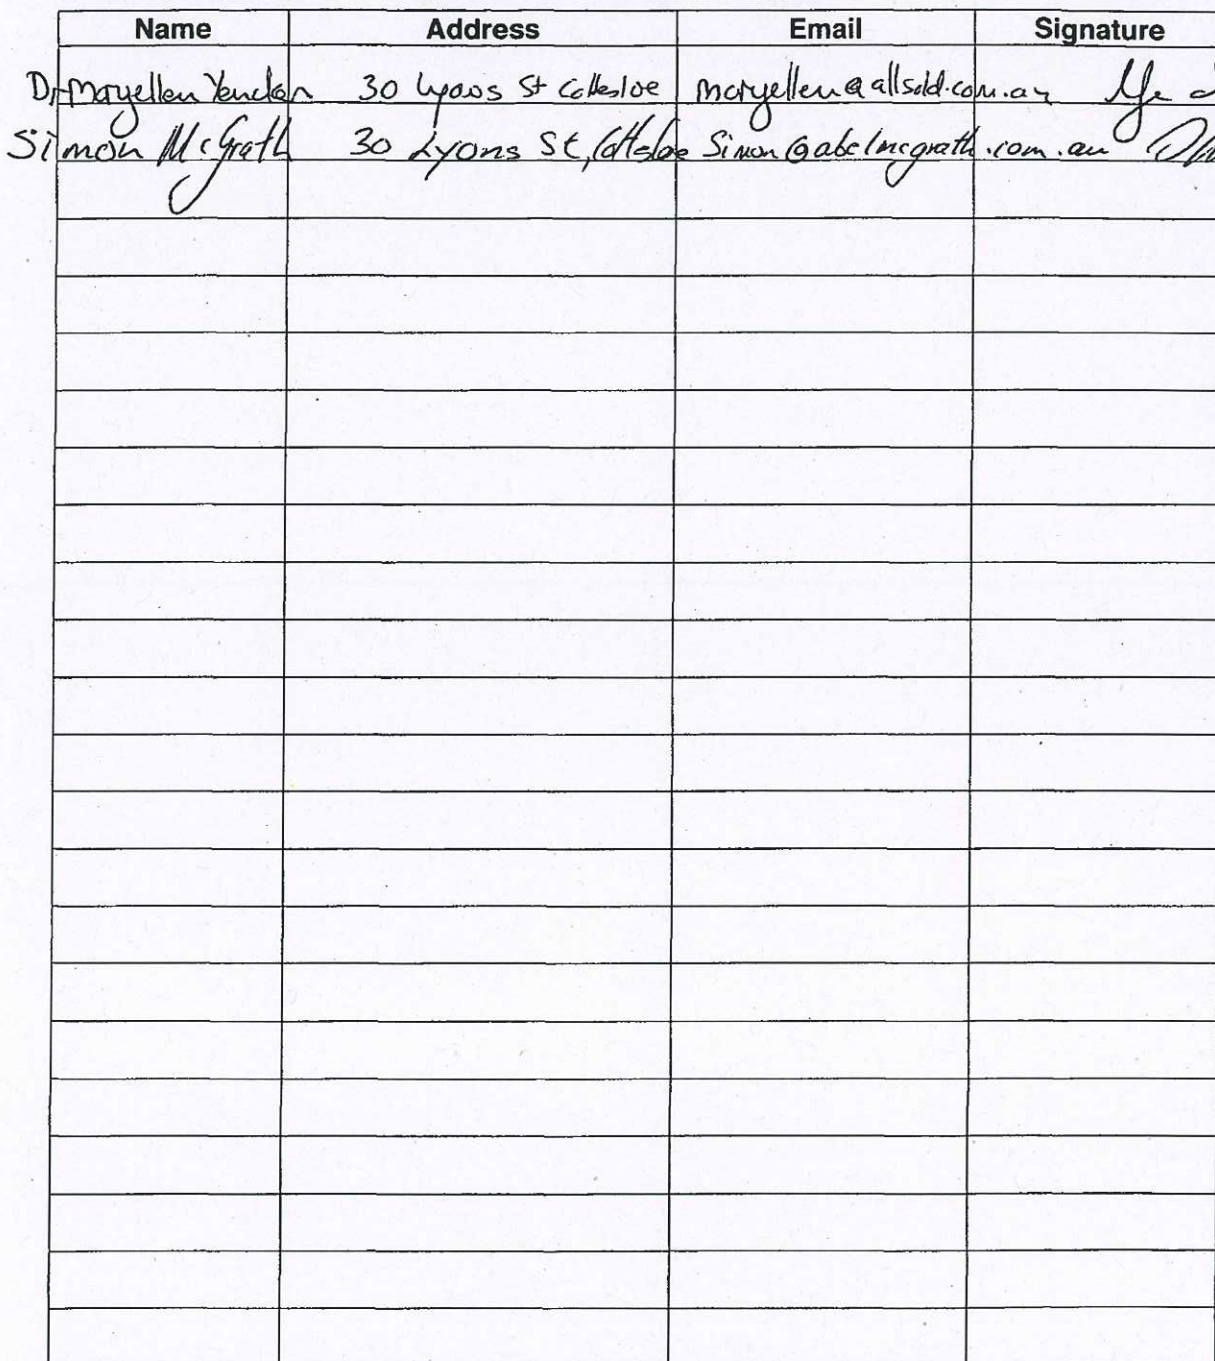 Name Address Email Signature
Dr Maryellen 30 Lyons St Cottesloe maryellen@allsold.com.au
Simon McGrath 30 Lyons St, Cottesloe Simon@abelmcgrath.com.au